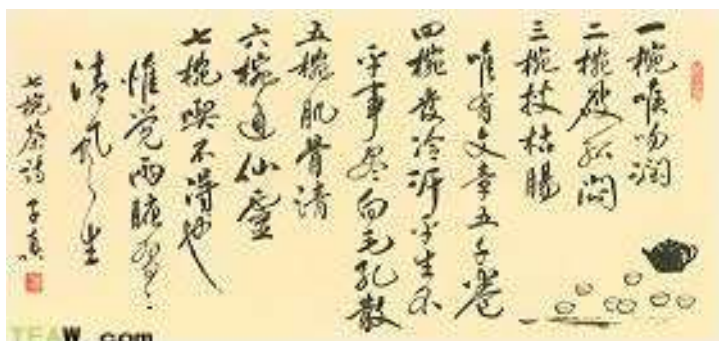 一椀喉吻润
二椀破孤闷
三椀搜枯腸
唯有文章五千卷
四椀发轻汗平生不
平事尽向毛孔散
五椀肌骨清
六椀通仙靈
七椀喫不得也
惟觉两腋习习
清风生
七椀茶诗 子真
TEAW.com